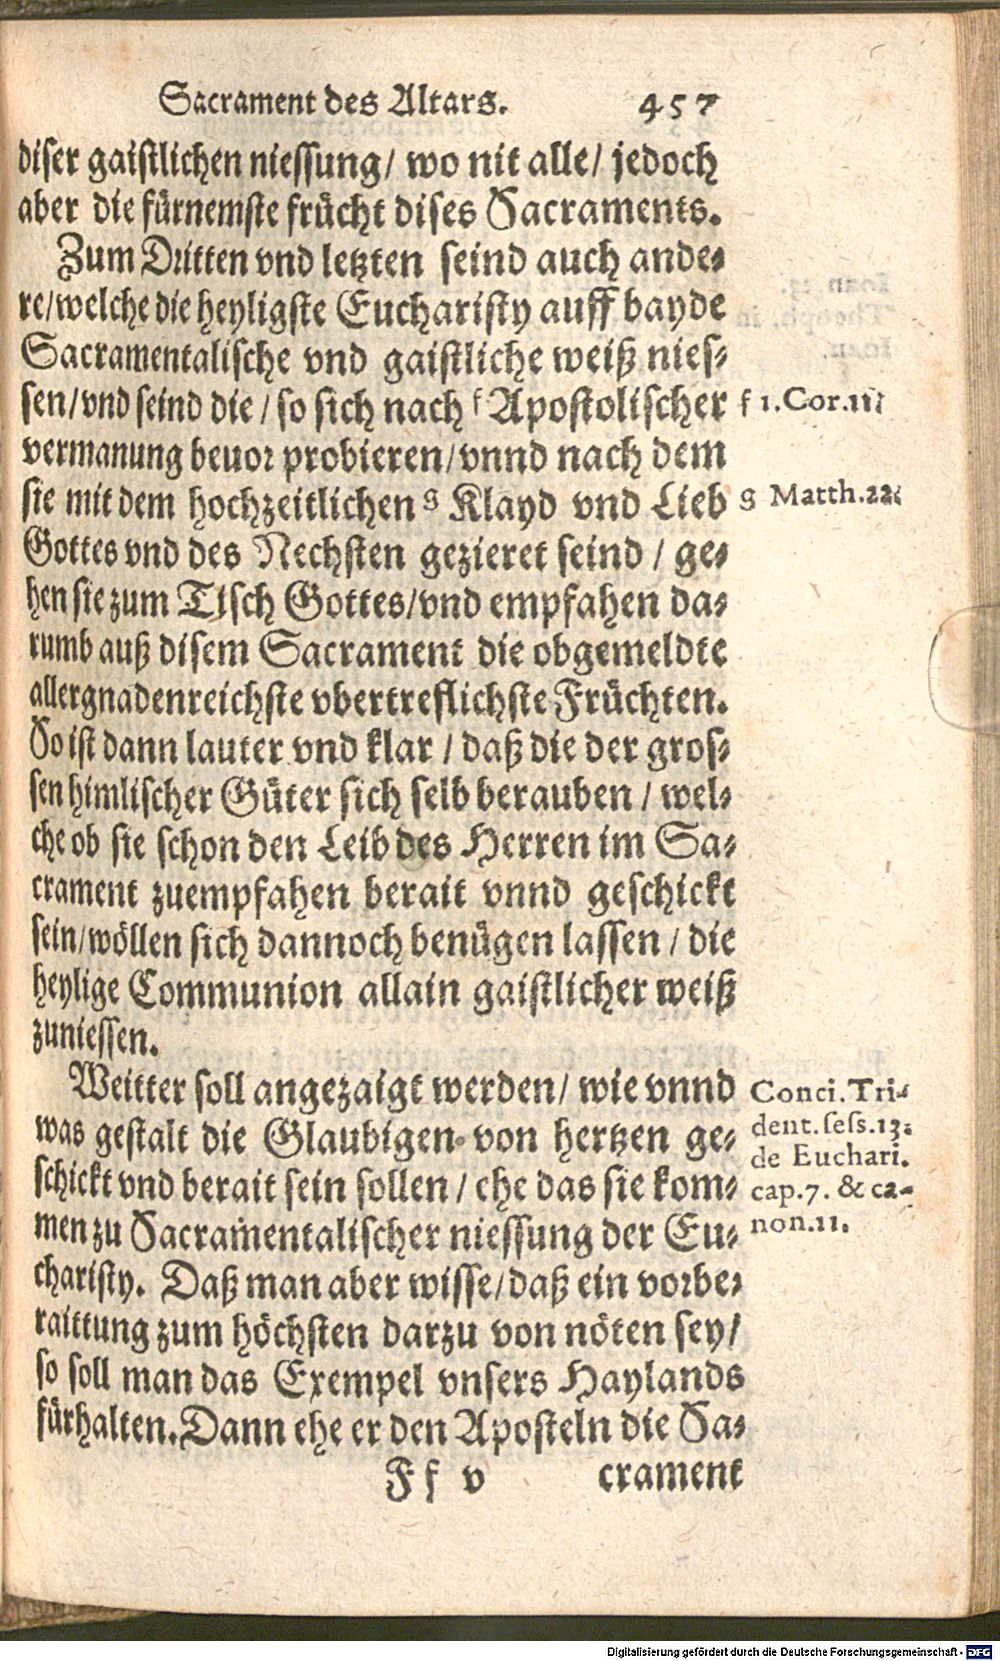 Sacrament des Altars. 457
diser gaistlichen niessung/ wo nit alle/ jedoch
aber die fürnemste frücht dises Sacraments.
Zum Dritten vnd letzten seind auch ande-
re/welche die heyligste Eucharisty auff bayde
Sacramentalische vnd gaistliche weiß nies-
sen/vnd seind die / so sich nach f Apostolischer
f 1.Cor.11.
vermanung beuor probieren/vnnd nach dem
sie mit dem hochzeitlichen g Klayd vnd Lieb
g Matth.22.
Gottes vnd des Nechsten gezieret seind / ge-
hen sie zum Tisch Gottes/vnd empfahen da-
rumb auß disem Sacrament die obgemeldte
allergnadenreichste vbertreflichste Früchten.
So ist dann lauter vnd klar / daß die der gros-
sen himlischer Güter sich selb berauben / wel-
che ob sie schon den Leib des Herren im Sa-
crament zuempfahen berait vnnd geschickt
sein/wöllen sich dannoch benügen lassen / die
heylige Communion allain gaistlicher weiß
zuniessen.
Weitter soll angezaigt werden/ wie vnnd
was gestalt die Glaubigen von hertzen ge-
schickt vnd berait sein sollen / ehe das sie kom-
men zu Sacramentalischer niessung der Eu-
charisty. Daß man aber wisse/daß ein vorbe-
raittung zum höchsten darzu von nöten sey/
so soll man das Exempel vnsers Haylands
fürhalten. Dann ehe er den Aposteln die Sa-
Conci. Tri-
dent. sess.13.
de Euchari.
cap.7. & ca-
non.11.
F f v crament
Digitalisierung gefördert durch die Deutsche Forschungsgemeinschaft - DFG